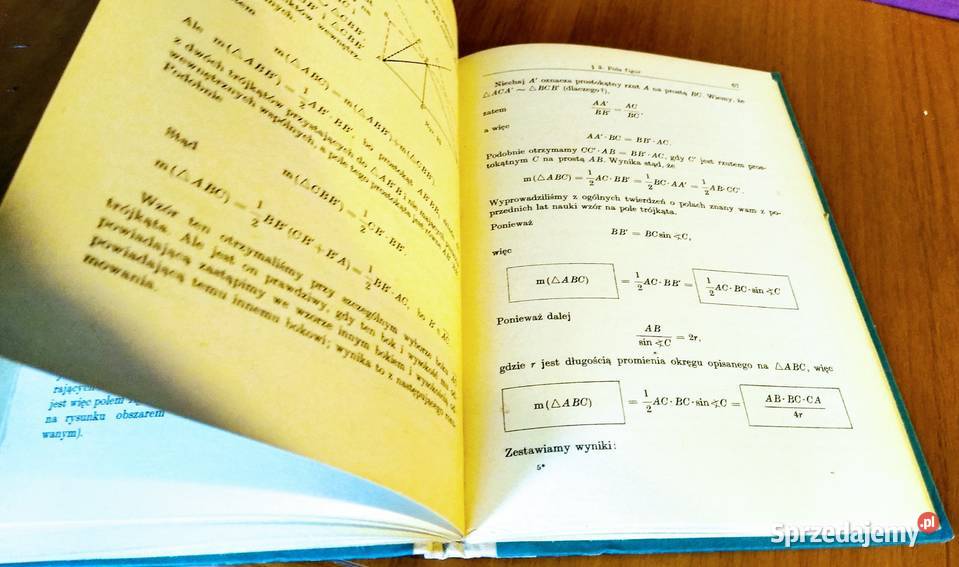 Ale m(△ABC) = m(△ABB′) + m(△CBB′).
m(△ABB′) = 1/2 AB′·BB′,
z dwóch trójkątów przystających do △AB′B
wewnętrznych wspólnych, a pole tego prostokąta
Podobnie
m(△CBB′) = 1/2 CB′·BB′.
Stąd
m(△ABC) = 1/2 BB′(CB′ + B′A) = 1/2 BB′·AC,
Wzór ten otrzymaliśmy przy szczególnym
trójkąta. Ale jest on prawdziwy, gdy ten bok i wysokość
powiadającą zastąpimy we wzorze innym bokiem i wysokością
powiadającą temu innemu bokowi; wynika to z następującego
mowania.
rających
jest więc polem
na rysunku obszarem
wanym).
§ 3. Pola figur 67
Niechaj A′ oznacza prostokątny rzut A na prostą BC. Wiemy, że
△ACA′ ∼ △BCB′ (dlaczego?),
zatem
AA′/BB′ = AC/BC,
a więc
AA′·BC = BB′·AC.
Podobnie otrzymamy CC′·AB = BB′·AC, gdy C′ jest rzutem pros-
tokątnym C na prostą AB. Wynika stąd, że
m(△ABC) = 1/2 AC·BB′ = 1/2 BC·AA′ = 1/2 AB·CC′.
Wyprowadziliśmy z ogólnych twierdzeń o polach znany wam z po-
przednich lat nauki wzór na pole trójkąta.
Ponieważ
BB′ = BC sin ∢C,
więc
m(△ABC) = 1/2 AC·BB′ = 1/2 AC·BC·sin ∢C
Ponieważ dalej
AB/sin ∢C = 2r,
gdzie r jest długością promienia okręgu opisanego na △ABC, więc
m(△ABC) = 1/2 AC·BC·sin ∢C = AB·BC·CA/4r
Zestawiamy wyniki:
5*
Sprzedajemy.pl